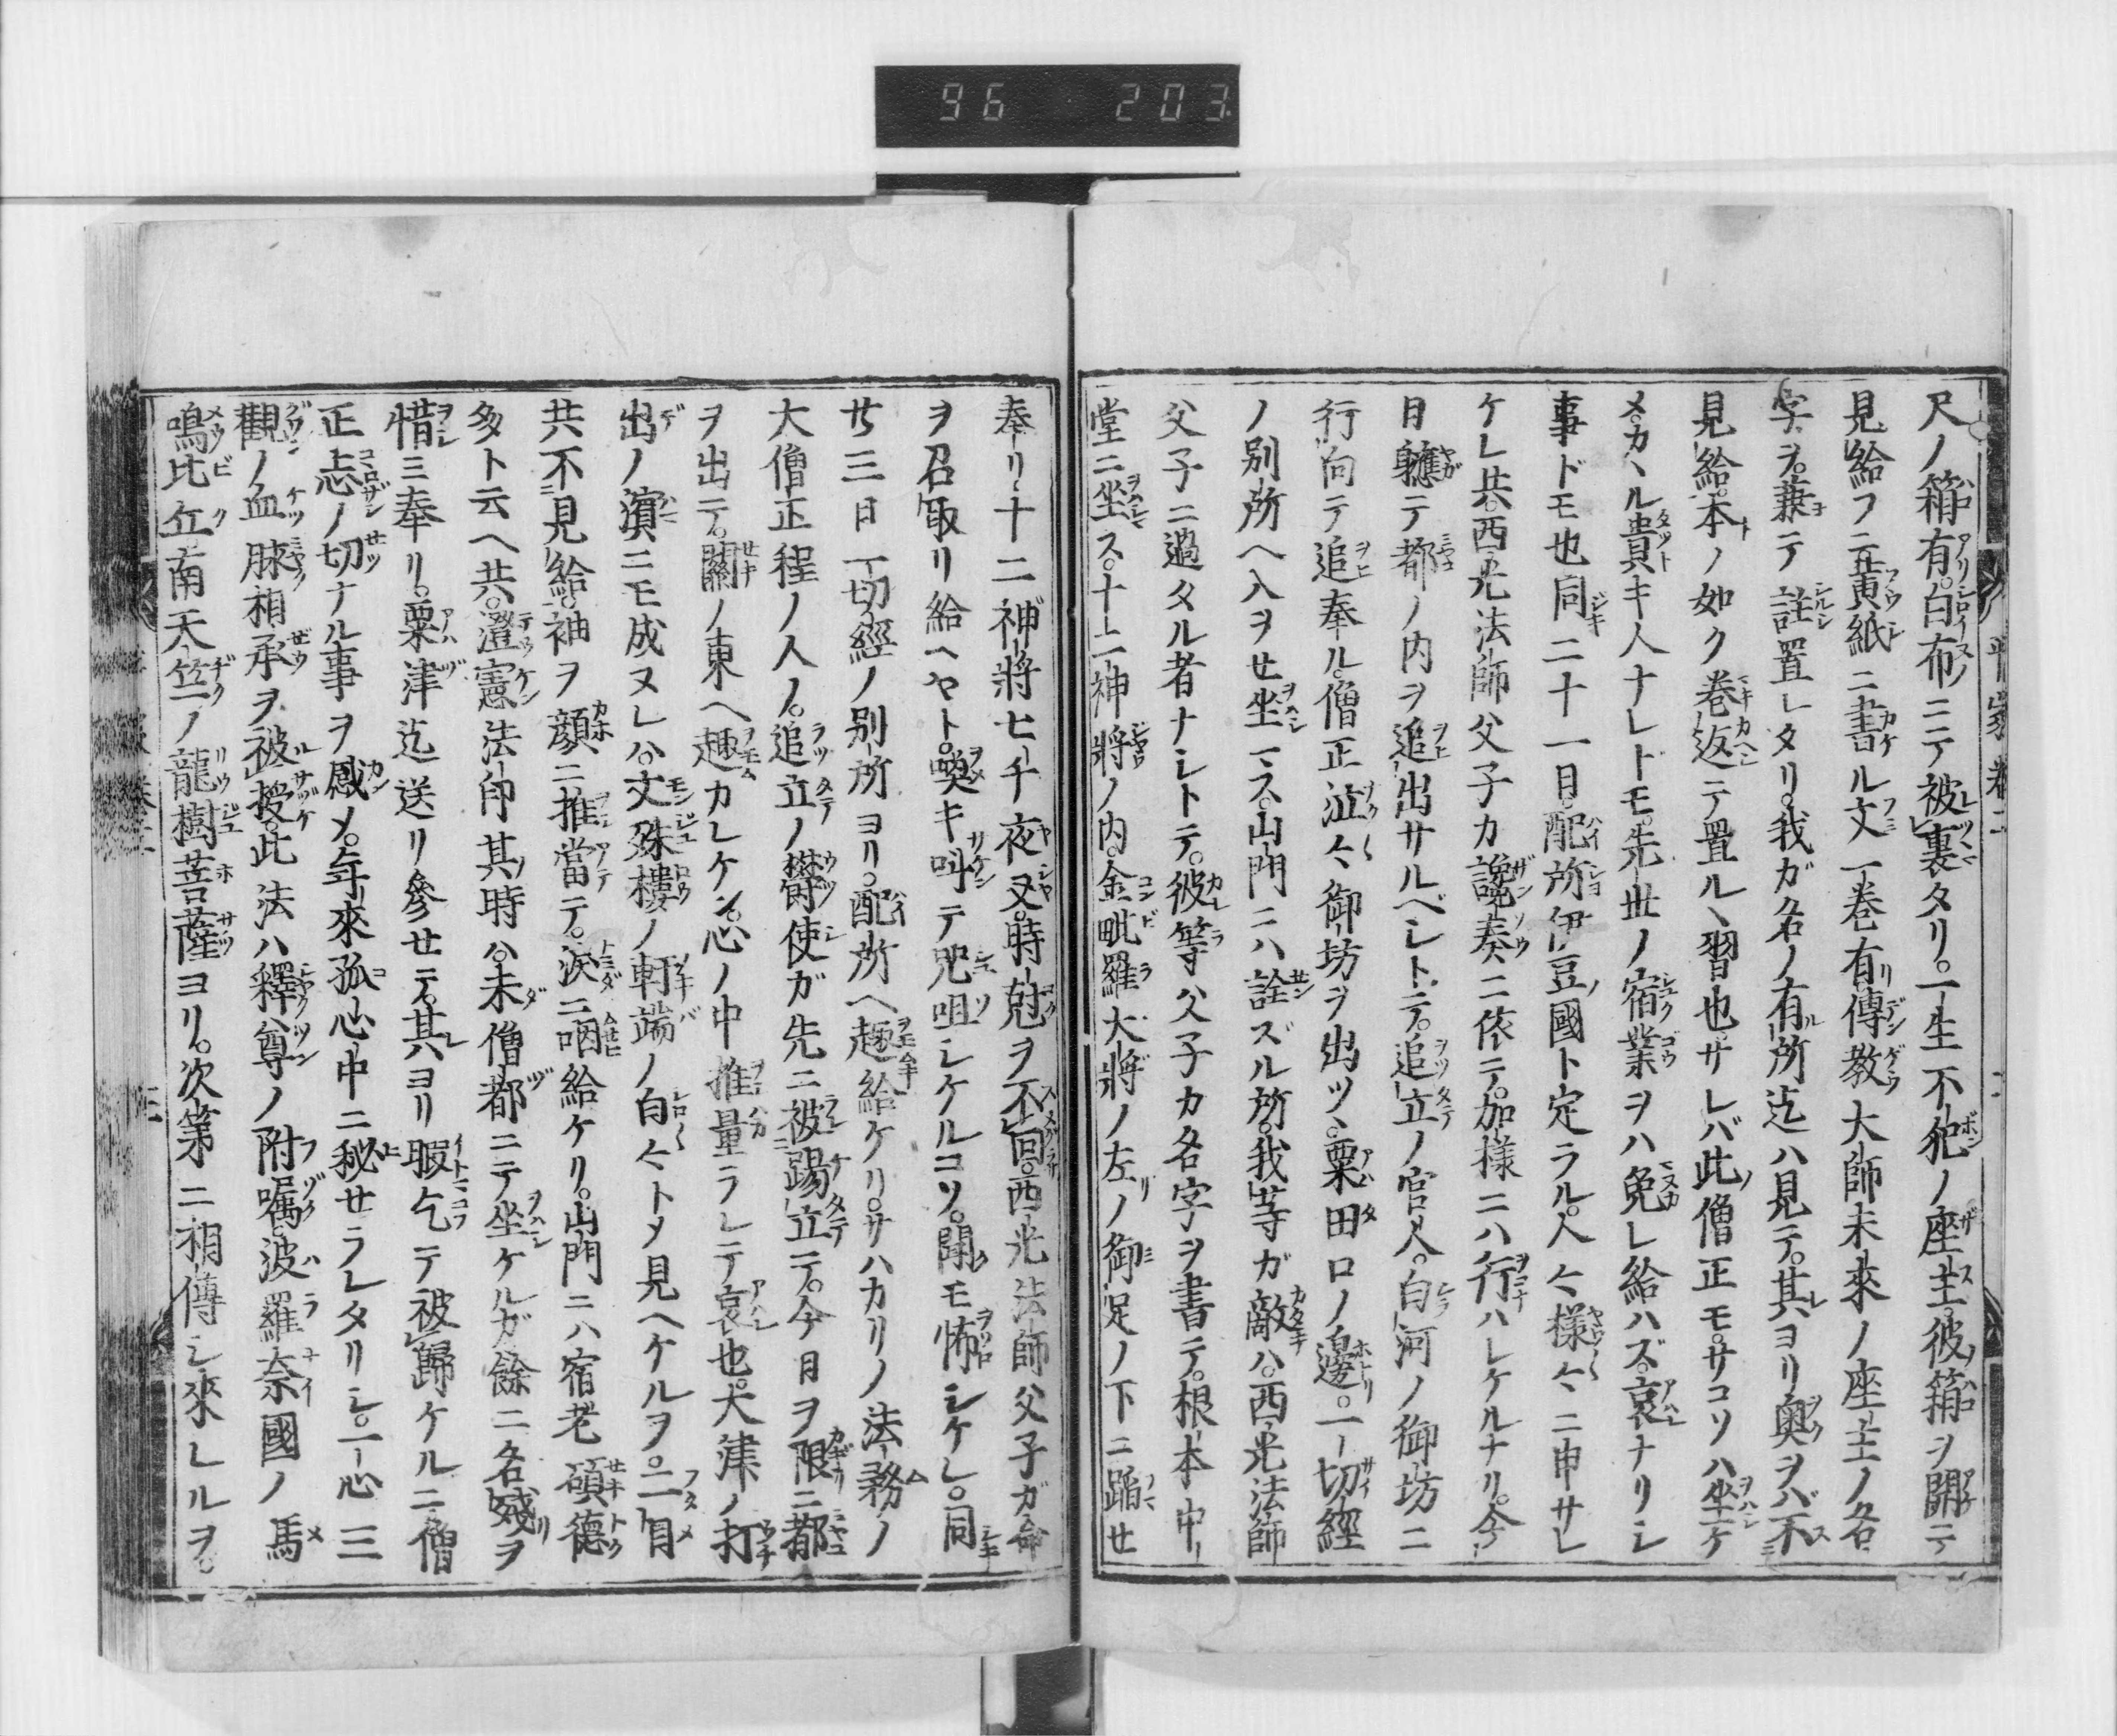 96 203
尺ノ箱有。白布ニテ被裹タリ。一生不犯ノ座主。彼箱ヲ開テ
見給フニ黄紙ニ書ル文一巻有。傳教大師未來ノ座主ノ名
字ヲ。兼テ註置レタリ。我ガ名ノ有所迄ハ見テ。其ヨリ奥ヲバ不
見給。本ノ如ク巻返ニテ置ルヽ習也。サレバ此僧正モ。サコソハ坐ケ
メ。カヽル貴キ人ナレトモ。先世ノ宿業ヲハ免レ給ハズ。哀ナリシ
事ドモ也同二十一日。配所伊豆國ト定ラル。人々様々ニ申サレ
ケレ共。西光法師父子カ讒奏ニ依テ。加様ニハ行ハレケルナリ。今
日軈テ都ノ内ヲ追出サルベシトテ。追立ノ官人。白河ノ御坊ニ
行向テ追奉ル。僧正泣々御坊ヲ出ツヽ。粟田口ノ邊。一切經
ノ別所ヘ入ヲセ坐マス。山門ニハ詮ズル所。我等ガ敵ハ。西光法師
父子ニ過タル者ナシトテ。彼等父子カ名字ヲ書テ。根本中
堂ニ坐ス。十二神將ノ内。金毗羅大將ノ左ノ御足ノ下ニ蹈セ
奉リ。十二神將七千夜叉。時尅ヲ不回。西光法師父子ガ命
ヲ召取リ給ヘヤト。喚キ叫テ咒咀シケルコソ。聞モ怖シケレ。同
廿三日一切經ノ別所ヨリ。配所ヘ趣給ケリ。サハカリノ法務ノ
大僧正程ノ人ノ。追立ノ欝使ガ先ニ被踢立テ。今日ヲ限ニ都
ヲ出テ。關ノ東ヘ趣カレケン。心ノ中推量ラレテ哀也。大津ノ打
出ノ濱ニモ成ヌレハ。文殊樓ノ軒端ノ白々トメ見ヘケルヲ。二目
共不見給。袖ヲ顔ニ推當テ。涙ニ咽給ケリ。山門ニハ宿老碩德
多ト云ヘ共。澄憲法印其時ハ。未僧都ニテ坐ケルガ餘ニ名殘ヲ
惜ミ奉リ。粟津迄送リ參セテ。其ヨリ暇乞テ被歸ケルニ僧
正志ノ切ナル事ヲ感メ。年來孤心中ニ秘セラレタリシ。一心三
觀ノ血脉相承ヲ。被授。此法ハ釋尊ノ附囑。波羅奈國ノ馬
鳴比丘。南天竺ノ龍樹菩薩ヨリ。次第ニ相傳シ來レルヲ。